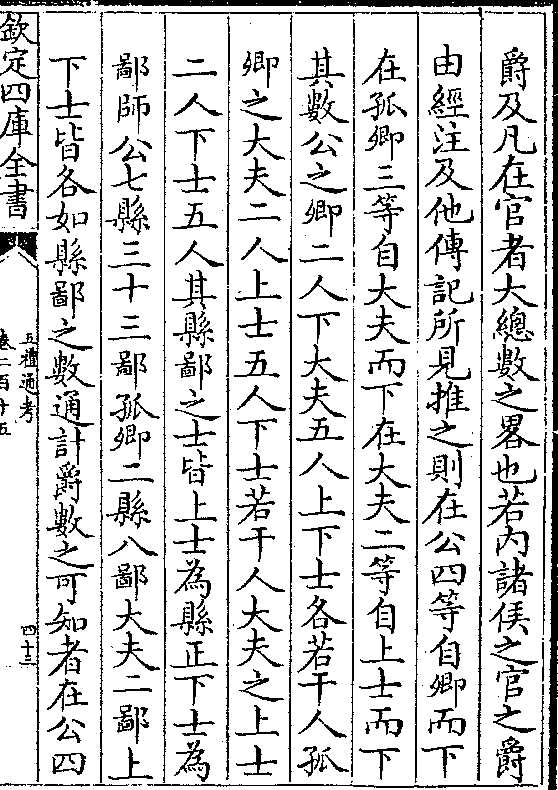 爵及凡在官者大總數之畧也若内諸侯之官之爵
由經注及他傳記所見推之則在公四等自卿而下
在孤卿三等自大夫而下在大夫二等自上士而下
其數公之卿二人下大夫五人上下士各若干人孤
卿之大夫二人上士五人下士若干人大夫之上士
二人下士五人其縣鄙之士皆上士為縣正下士為
鄙師公七縣三十三鄙孤卿二縣八鄙大夫二鄙上
下士皆各如縣鄙之數通計爵數之可知者在公四
欽定四庫全書
五禮通考
卷二百十五
四十三